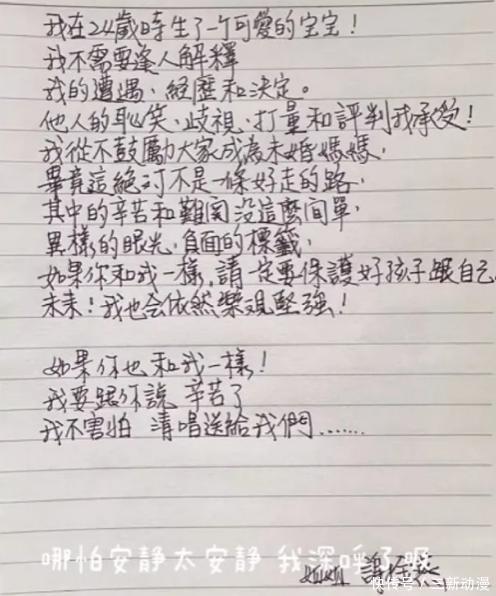 我在24歲時生了一个可愛的宝宝！
我不需要逢人解釋
我的遭遇、経歷和決定。
他人的恥笑、歧視、打量和評判我承受！
我從不鼓勵大家成為未婚媽媽，
畢竟這絕对不是一條好走的路，
其中的辛苦和難関没這麼间單，
異樣的眼光，負面的標籤，
如果你和我一樣，請一定要保護好孩子跟自己
未来！我也会依然樂观堅強！
如果你也和我一樣！
我要跟你說 辛苦了
我不害怕 清唱送給我們......
哪怕安静太安静 我深呼了吸
快传号/三新动漫